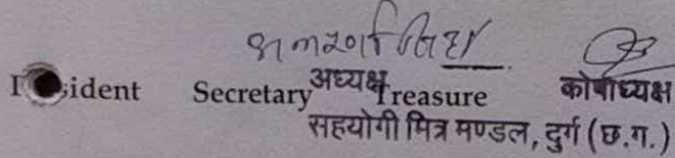 ident Secretary अध्यक्ष Treasure कोषाध्यक्ष
सहयोगी मित्र मण्डल, दुर्ग (छ.ग.)